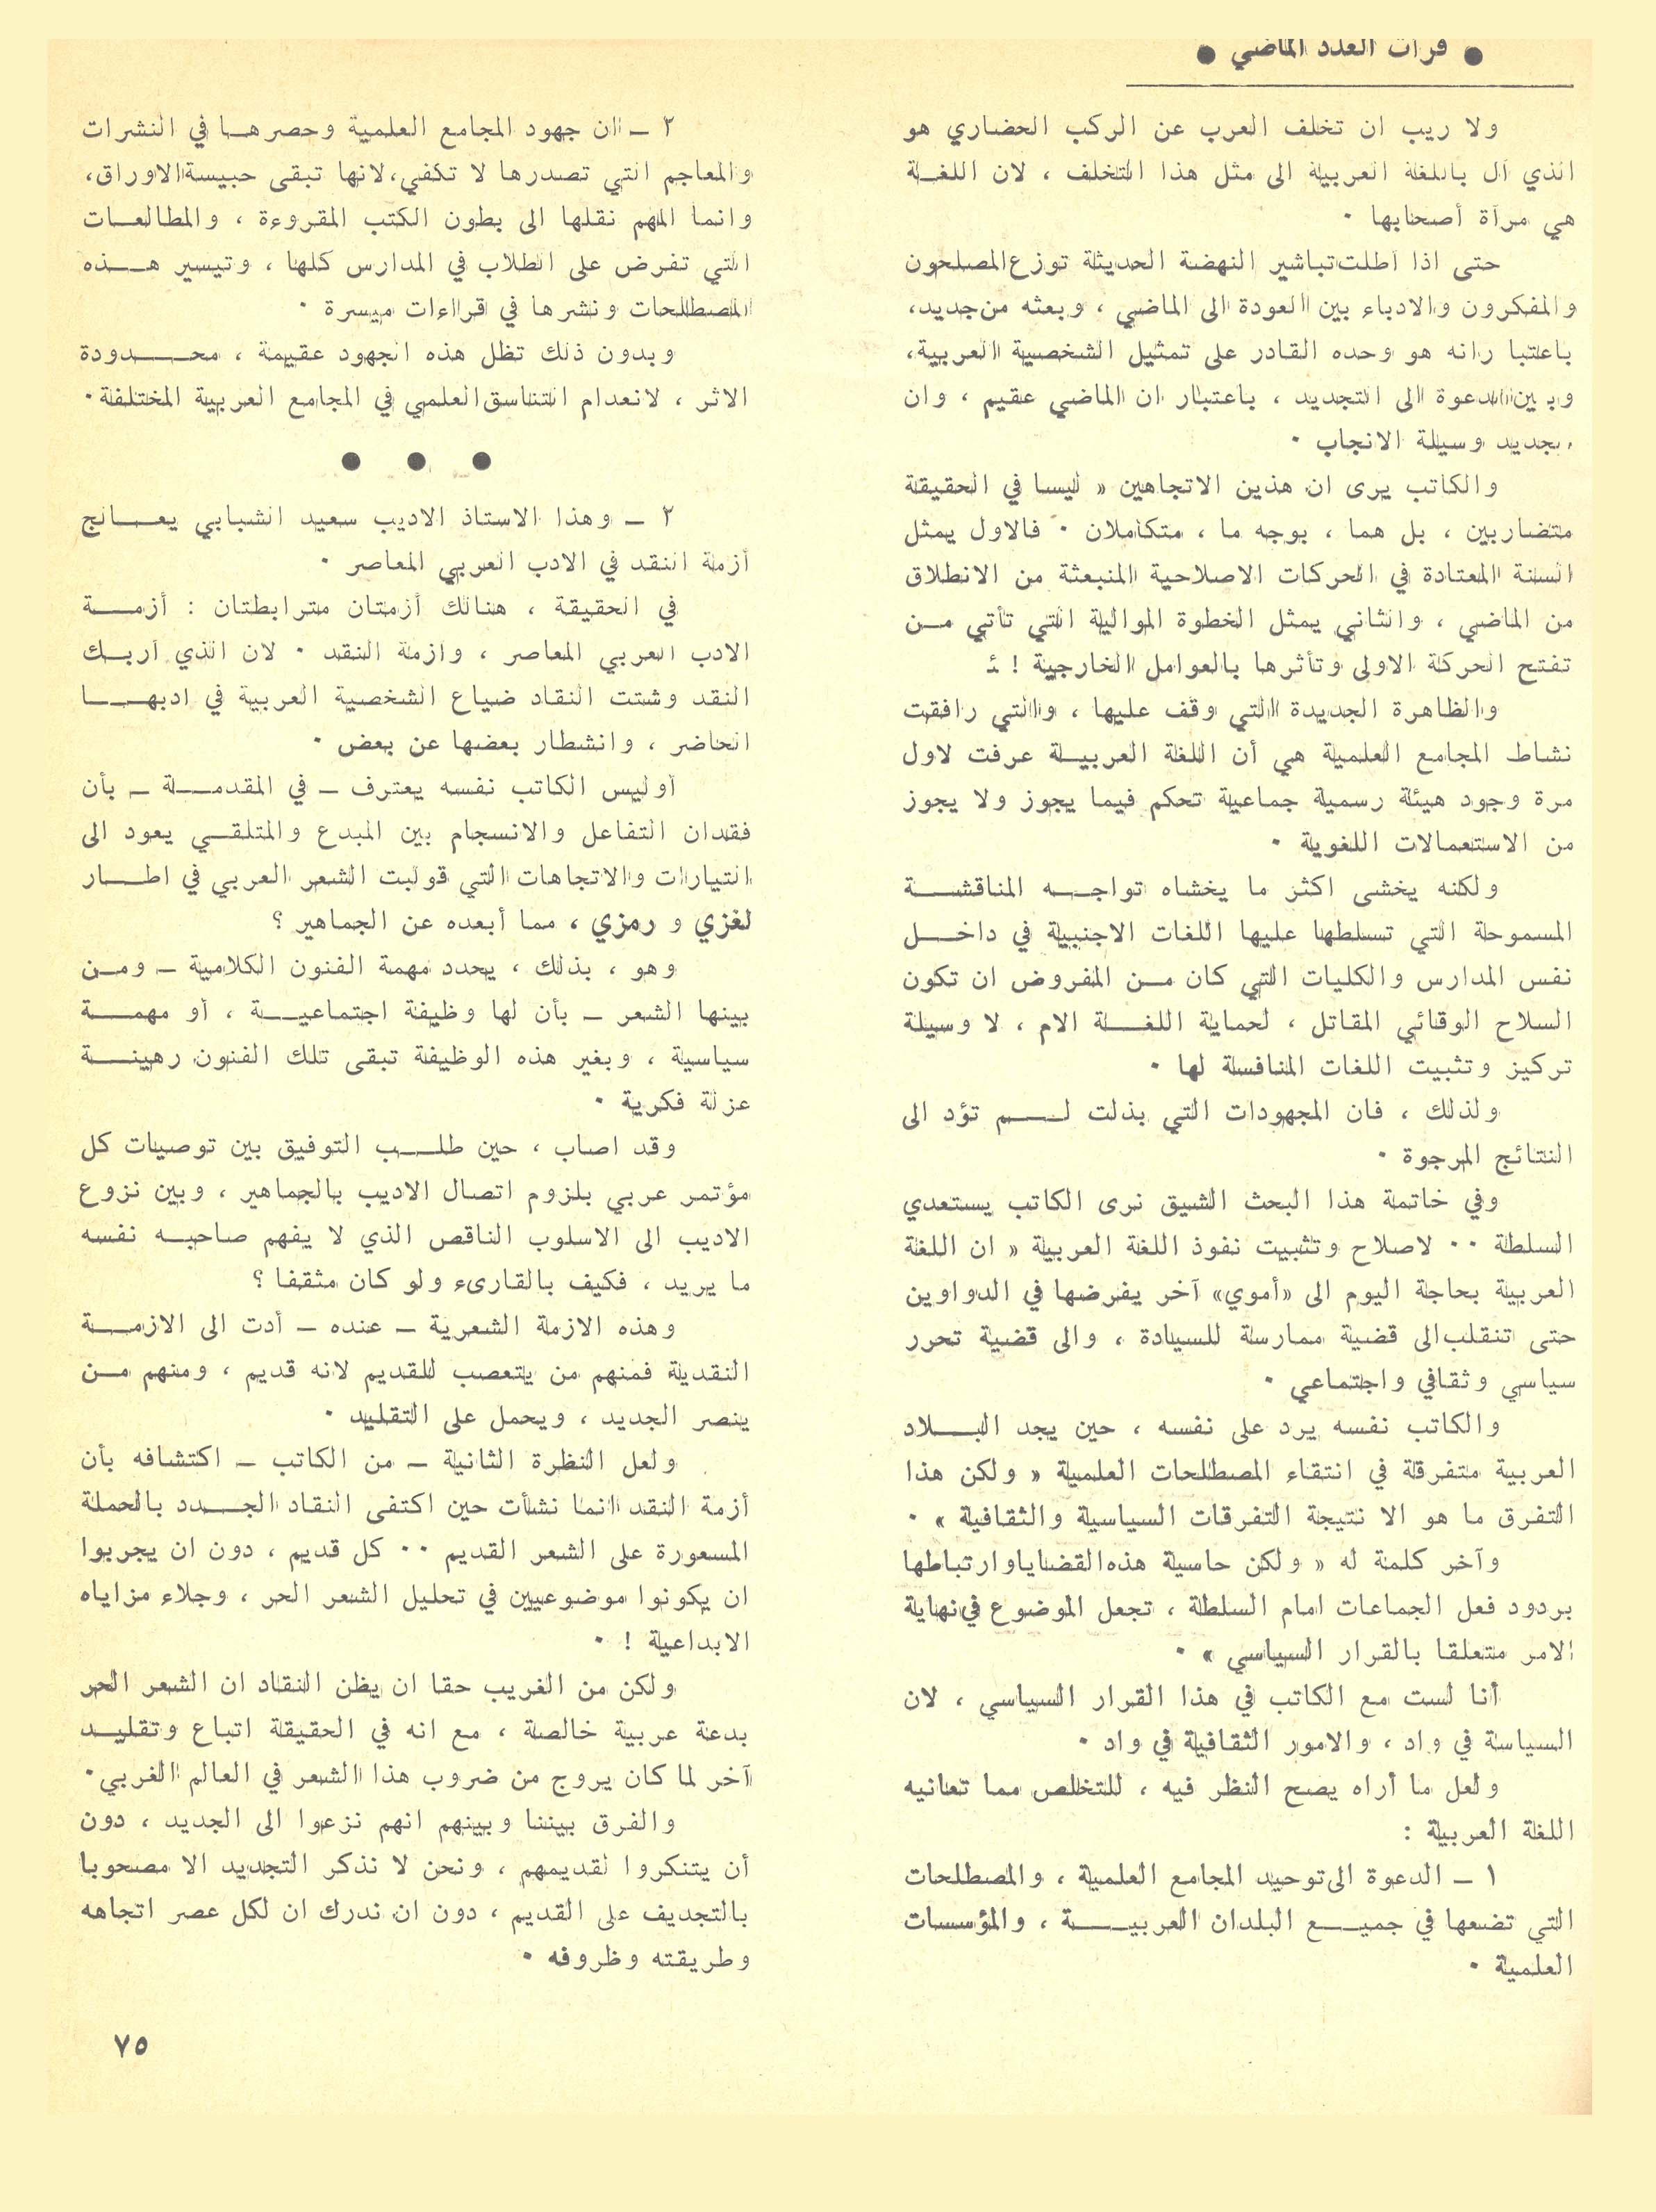 ● قرات العدد الماضي ●
ولا ريب ان تخلف العرب عن الركب الحضاري هو
الذي آل باللغة العربية الى مثل هذا التخلف ، لان اللغـة
هي مرآة أصحابها ٠
حتى اذا أطلت تباشير النهضة الحديثة توزع المصلحون
والمفكرون والادباء بين العودة الى الماضي ، وبعثه من جديد،
باعتبا رانه هو وحده القادر على تمثيل الشخصية العربية،
وبين الدعوة الى التجديد ، باعتبار ان الماضي عقيم ، وان
بجديد وسيلة الانجاب ٠
والكاتب يرى ان هذين الاتجاهين « ليسا في الحقيقة
متضاربين ، بل هما ، بوجه ما ، متكاملان ٠ فالاول يمثل
السنة المعتادة في الحركات الاصلاحية المنبعثة من الانطلاق
من الماضي ، والثاني يمثل الخطوة الموالية التي تأتي مـن
تفتح الحركة الاولى وتأثرها بالعوامل الخارجية !
والظاهرة الجديدة التي وقف عليها ، والتي رافقت
نشاط المجامع العلمية هي أن اللغة العربيـة عرفت لاول
مرة وجود هيئة رسمية جماعية تحكم فيما يجوز ولا يجوز
من الاستعمالات اللغوية ٠
ولكنه يخشى اكثر ما يخشاه تواجـه المناقشـة
المسموحة التي تسلطها عليها اللغات الاجنبية في داخـل
نفس المدارس والكليات التي كان مـن المفروض ان تكون
السلاح الوقائي المقاتل ، لحماية اللغـة الام ، لا وسيلة
تركيز وتثبيت اللغات المنافسة لها ٠
ولذلك ، فان المجهودات التي بذلت لـم تؤد الى
النتائج المرجوة ٠
وفي خاتمة هذا البحث الشيق نرى الكاتب يستعدي
السلطة ٠٠ لاصلاح وتثبيت نفوذ اللغة العربية « ان اللغة
العربية بحاجة اليوم الى «أموي» آخر يفرضها في الدواوين
حتى تنقلب الى قضية ممارسة للسيادة ، والى قضية تحرر
سياسي وثقافي واجتماعي ٠
والكاتب نفسه يرد على نفسه ، حين يجد البـلاد
العربية متفرقة في انتقاء المصطلحات العلمية « ولكن هذا
التفرق ما هو الا نتيجة التفرقات السياسية والثقافية » ٠
وآخر كلمة له « ولكن حاسية هذه القضايا وارتباطها
بردود فعل الجماعات امام السلطة ، تجعل الموضوع في نهاية
الامر متعلقا بالقرار السياسي » ٠
أنا لست مع الكاتب في هذا القرار السياسي ، لان
السياسة في واد ، والامور الثقافية في واد ٠
ولعل ما أراه يصح النظر فيه ، للتخلص مما تعانيه
اللغة العربية :
١ ـ الدعوة الى توحيد المجامع العلمية ، والمصطلحات
التي تضعها في جميـع البلدان العربيـة ، والمؤسسات
العلمية ٠
٢ ـ ان جهود المجامع العلمية وحصرهـا في النشرات
والمعاجم التي تصدرها لا تكفي، لانها تبقى حبيسة الاوراق،
وانما المهم نقلها الى بطون الكتب المقروءة ، والمطالعـات
التي تفرض على الطلاب في المدارس كلها ، وتيسير هـذه
المصطلحات ونشرها في قراءات ميسرة ٠
وبدون ذلك تظل هذه الجهود عقيمة ، محـدودة
الاثر ، لانعدام التناسق العلمي في المجامع العربية المختلفة٠
● ● ●
٢ ـ وهذا الاستاذ الاديب سعيد الشبابي يعـالج
أزمة النقد في الادب العربي المعاصر ٠
في الحقيقة ، هنالك أزمتان مترابطتان : أزمـة
الادب العربي المعاصر ، وازمة النقد ٠ لان الذي أربـك
النقد وشتت النقاد ضياع الشخصية العربية في ادبهـا
الحاضر ، وانشطار بعضها عن بعض ٠
أوليس الكاتب نفسه يعترف ـ في المقدمـة ـ بأن
فقدان التفاعل والانسجام بين المبدع والمتلقـي يعود الى
التيارات والاتجاهات التي قولبت الشعر العربي في اطـار
لغزي و رمزي ، مما أبعده عن الجماهير ؟
وهو ، بذلك ، يحدد مهمة الفنون الكلامية ـ ومـن
بينها الشعر ـ بأن لها وظيفة اجتماعيـة ، أو مهمـة
سياسية ، وبغير هذه الوظيفة تبقى تلك الفنون رهينـة
عزلة فكرية ٠
وقد اصاب ، حين طلـب التوفيق بين توصيات كل
مؤتمر عربي بلزوم اتصال الاديب بالجماهير ، وبين نزوع
الاديب الى الاسلوب الناقص الذي لا يفهم صاحبـه نفسه
ما يريد ، فكيف بالقارىء ولو كان مثقفا ؟
وهذه الازمة الشعرية ـ عنده ـ أدت الى الازمـة
النقدية فمنهم من يتعصب للقديم لانه قديم ، ومنهم مـن
ينصر الجديد ، ويحمل على التقليد ٠
ولعل النظرة الثانية ـ من الكاتب ـ اكتشافه بأن
أزمة النقد انما نشأت حين اكتفى النقاد الجـدد بالحملة
المسعورة على الشعر القديم ٠٠ كل قديم ، دون ان يجربوا
ان يكونوا موضوعيين في تحليل الشعر الحر ، وجلاء مزاياه
الابداعية ! ٠
ولكن من الغريب حقا ان يظن النقاد ان الشعر الحر
بدعة عربية خالصة ، مع انه في الحقيقة اتباع وتقليـد
آخر لما كان يروج من ضروب هذا الشعر في العالم الغربي٠
والفرق بيننا وبينهم انهم نزعوا الى الجديد ، دون
أن يتنكروا لقديمهم ، ونحن لا نذكر التجديد الا مصحوبا
بالتجديف على القديم ، دون ان ندرك ان لكل عصر اتجاهه
وطريقته وظروفه ٠
٧٥